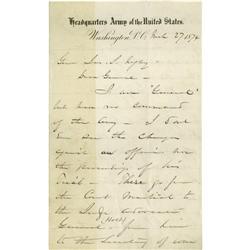 Headquarters Army of the United States.
Washington, D.C. 27 1874
Dear General
I am "General"
but have no Command
of the Army - I don't
Ever see the Charges
against an officer nor
the proceedings of his
Trial - These go from
the Court Martial to
the Judge Advocate
General (Holt) from him
to the Secretary of War